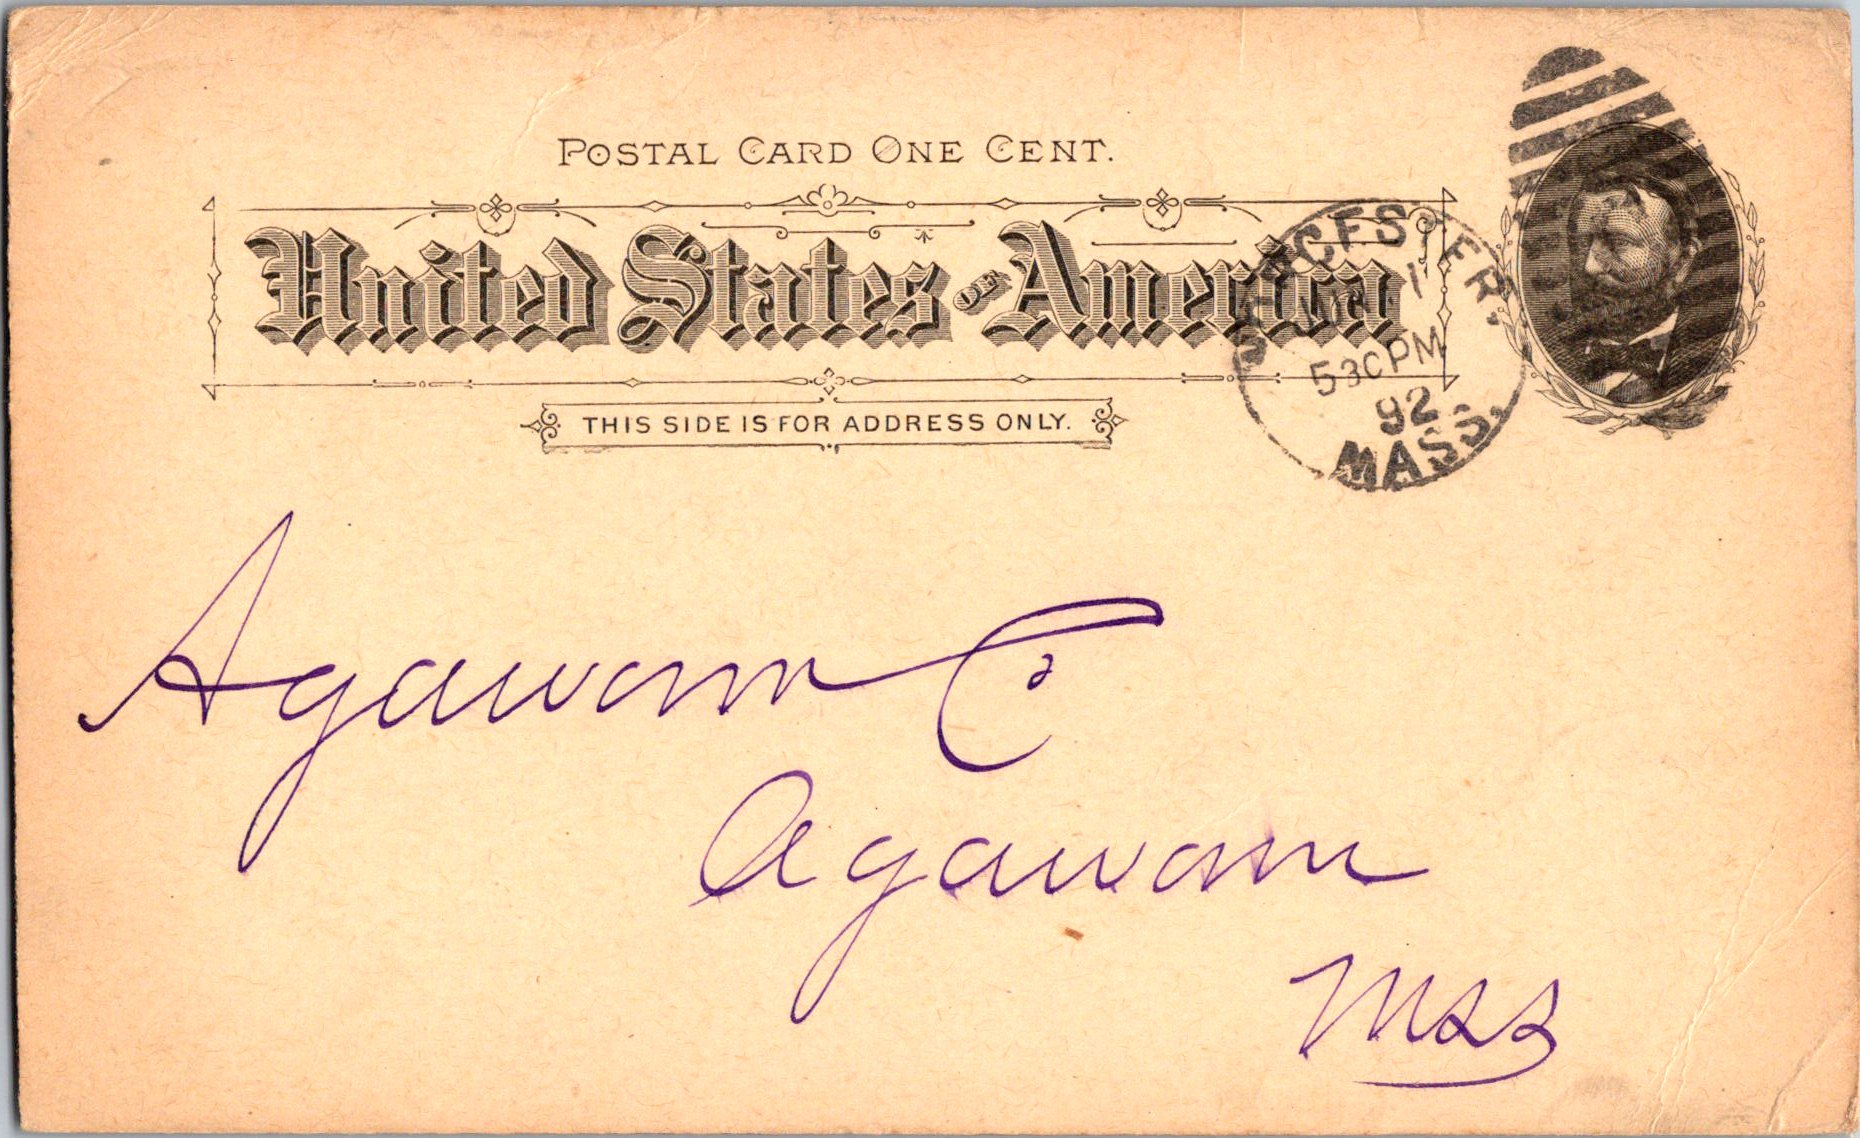 POSTAL CARD ONE CENT.
United States OF America
THIS SIDE IS FOR ADDRESS ONLY.
WORCESTER,
1
530PM
92
MASS.
Agawam Co
Agawam
Mss